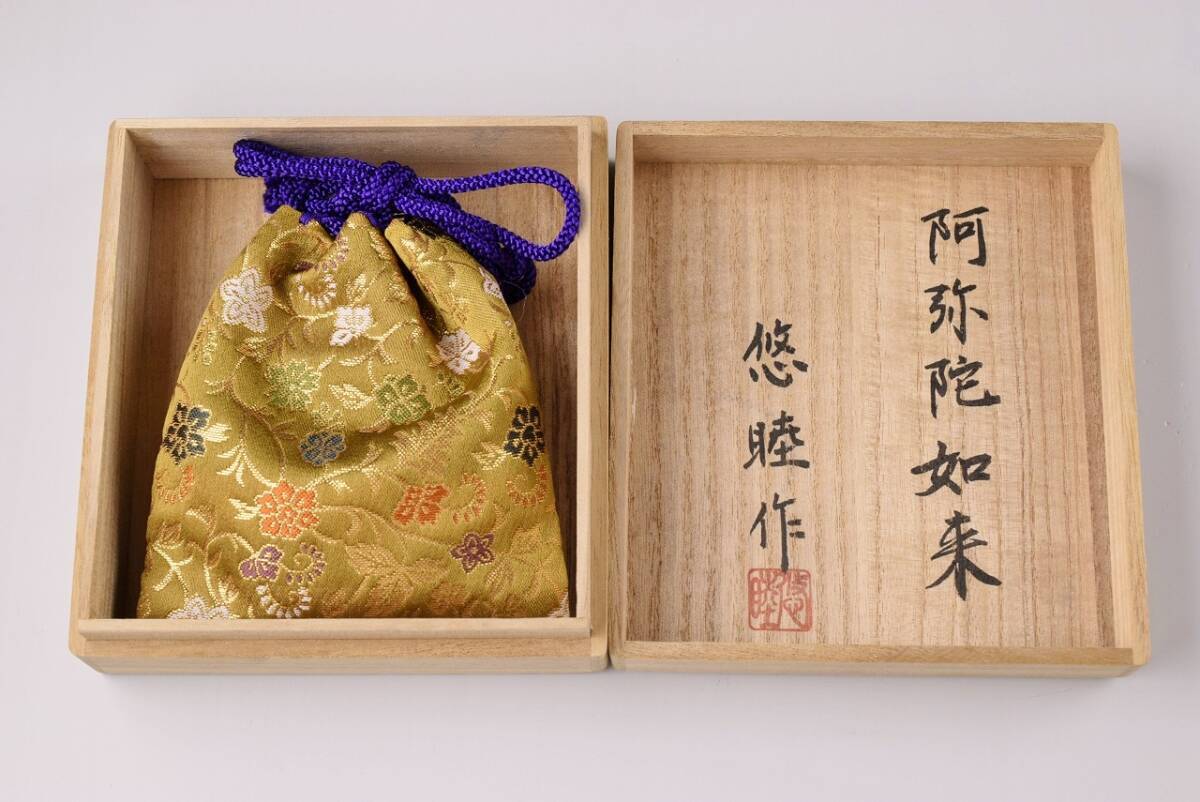 阿弥陀如来
悠睦作
悠睦